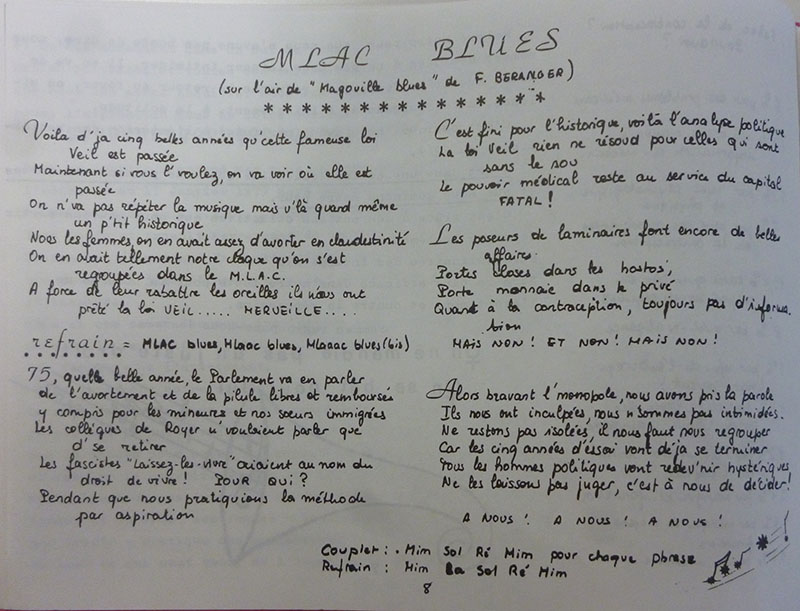 MLAC BLUES
(sur l'air de "Magouille blues" de F. BERANGER)
* * * * * * * * * * * * * * *
Voila d'ja cinq belles années qu'cette fameuse loi
Veil est passée
Maintenant si vous l'voulez, on va voir où elle est
passée
On n'va pas répéter la musique mais v'là quand même
un p'tit historique
Nous les femmes, on en avait assez d'avorter en clandestinité
On en avait tellement notre claque qu'on s'est
regroupées dans le M.L.A.C.
A force de leur rabattre les oreilles ils nous ont
prêté la loi VEIL ..... MERVEILLE ....
refrain = MLAC blues, MLaac blues, MLaaac blues (bis)
75, quelle belle année, le Parlement va en parler
de l'avortement et de la pilule libres et remboursés
y compris pour les mineures et nos soeurs immigrées
Les collègues de Royer n'voulaient parler que
d'se retirer
Les fascistes "Laissez-les-vivre" criaient au nom du
droit de vivre ! POUR QUI ?
Pendant que nous pratiquions la méthode
par aspiration
C'est fini pour l'historique, voilà l'analyse politique
La loi Veil rien ne résoud pour celles qui sont
sans le sou
Le pouvoir médical reste au service du capital
FATAL !
Les poseurs de laminaires font encore de belles
affaires
Portes closes dans les hostos,
Porte monnaie dans le privé
Quant à la contraception, toujours pas d'informa.
bien
MAIS NON ! ET NON ! MAIS NON !
Alors bravant l'monopole, nous avons pris la parole
Ils nous ont inculpées, nous n'sommes pas intimidées.
Ne restons pas isolées, il nous faut nous regrouper
Car les cinq années d'essai vont déja se terminer
Tous les hommes politiques vont redev'nir hystériques
Ne les laissons pas juger, c'est à nous de décider !
A NOUS ! A NOUS ! A NOUS !
Couplet : . Mim Sol Ré Mim pour chaque phrase
Refrain : Mim La Sol Ré Mim
8